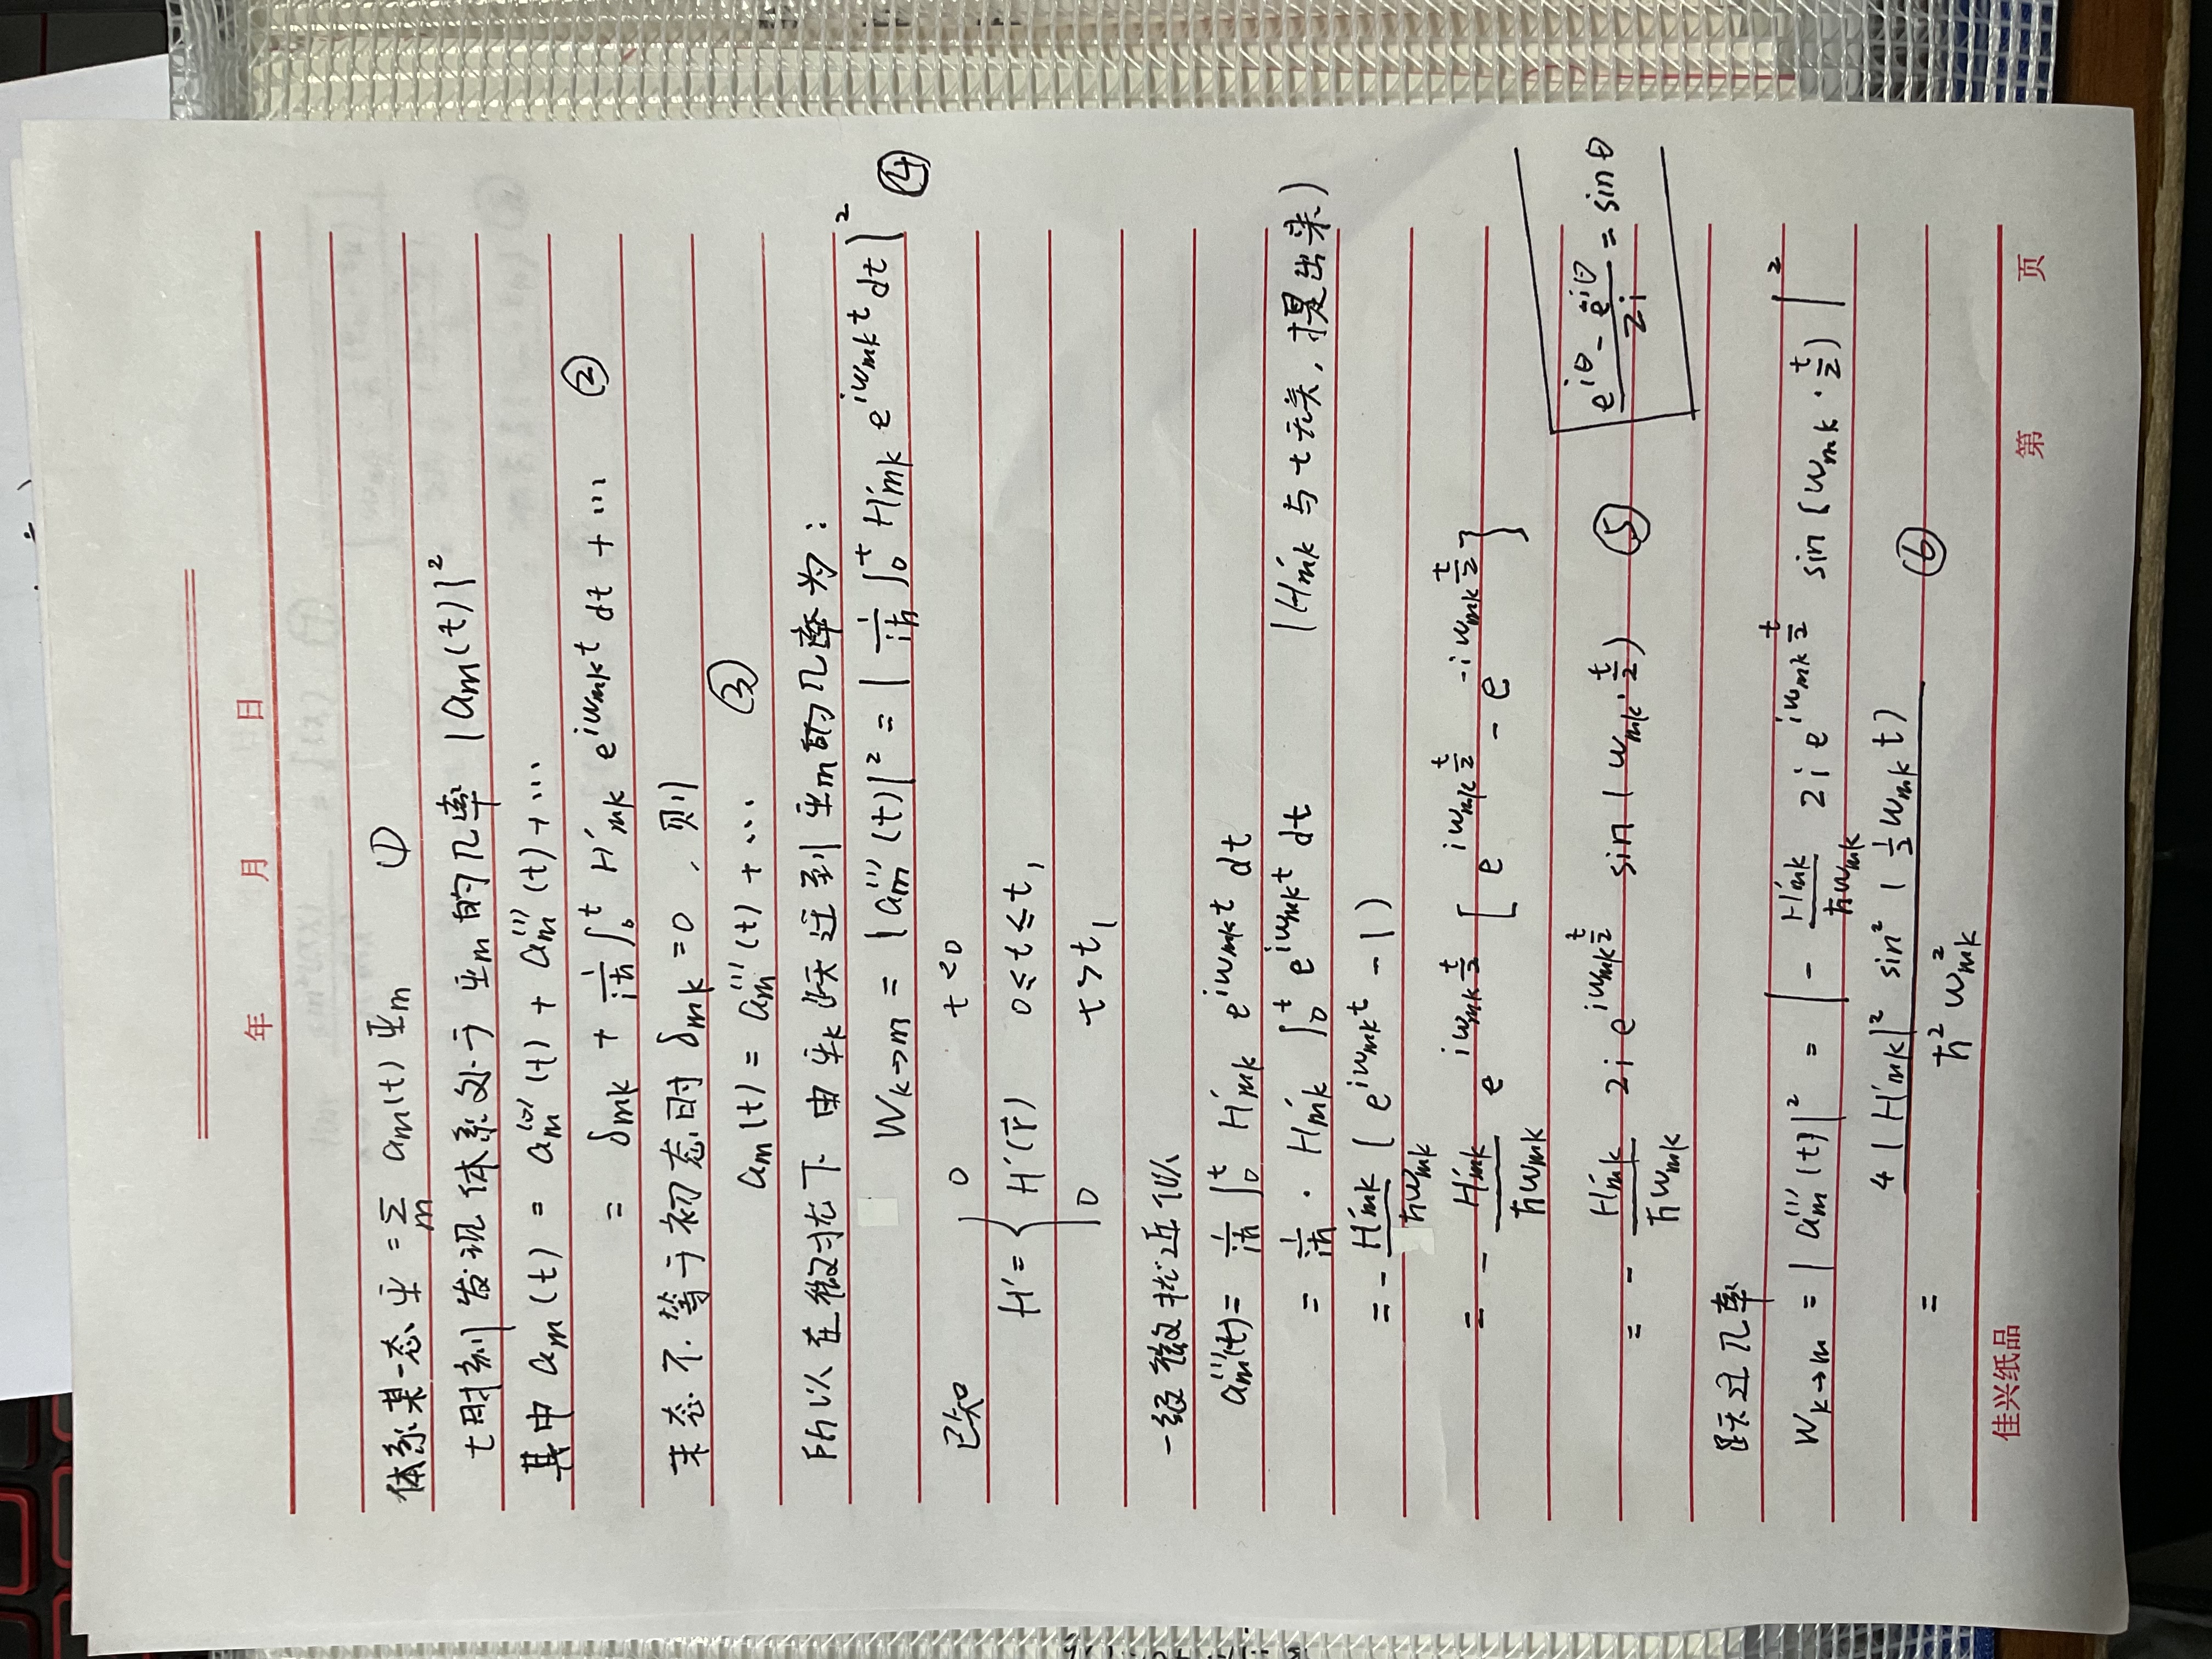 年 月 日
体系某一态 Ψ = Σ_m a_m(t) Ψ_m ①
t时刻发现体系处于 Ψ_m 的几率 |a_m(t)|²
其中 a_m(t) = a_m^(0)(t) + a_m^(1)(t) + …
= δ_mk + 1/(iħ) ∫_0^t H'_mk e^{iω_mk t} dt + … ②
末态不等于初态时 δ_mk = 0 , 则
a_m(t) = a_m^(1)(t) + … ③
所以在微扰下 由Ψ_k 跃迁到 Ψ_m的几率为:
W_{k→m} = |a_m^(1)(t)|² = |1/(iħ) ∫_0^t H'_mk e^{iω_mk t} dt|² ④
已知 0 t<0
H' = { H'(r⃗) 0≤t≤t₁
0 t>t₁
一级微扰近似
a_m^(1)(t) = 1/(iħ) ∫_0^t H'_mk e^{iω_mk t} dt
= 1/(iħ) · H'_mk ∫_0^t e^{iω_mk t} dt (H'_mk 与 t 无关, 提出来)
= - H'_mk/(ħω_mk) ( e^{iω_mk t} - 1 )
= - H'_mk/(ħω_mk) e^{iω_mk t/2} [ e^{iω_mk t/2} - e^{-iω_mk t/2} ]
= - H'_mk/(ħω_mk) 2i e^{iω_mk t/2} sin(ω_mk · t/2) ⑤
(e^{iθ} - e^{-iθ})/2i = sinθ
跃迁几率
W_{k→m} = |a_m^(1)(t)|² = |- H'_mk/(ħω_mk) 2i e^{iω_mk t/2} sin(ω_mk · t/2)|²
= 4|H'_mk|² sin²(½ω_mk t) / (ħ² ω_mk²) ⑥
佳兴纸品 第 页